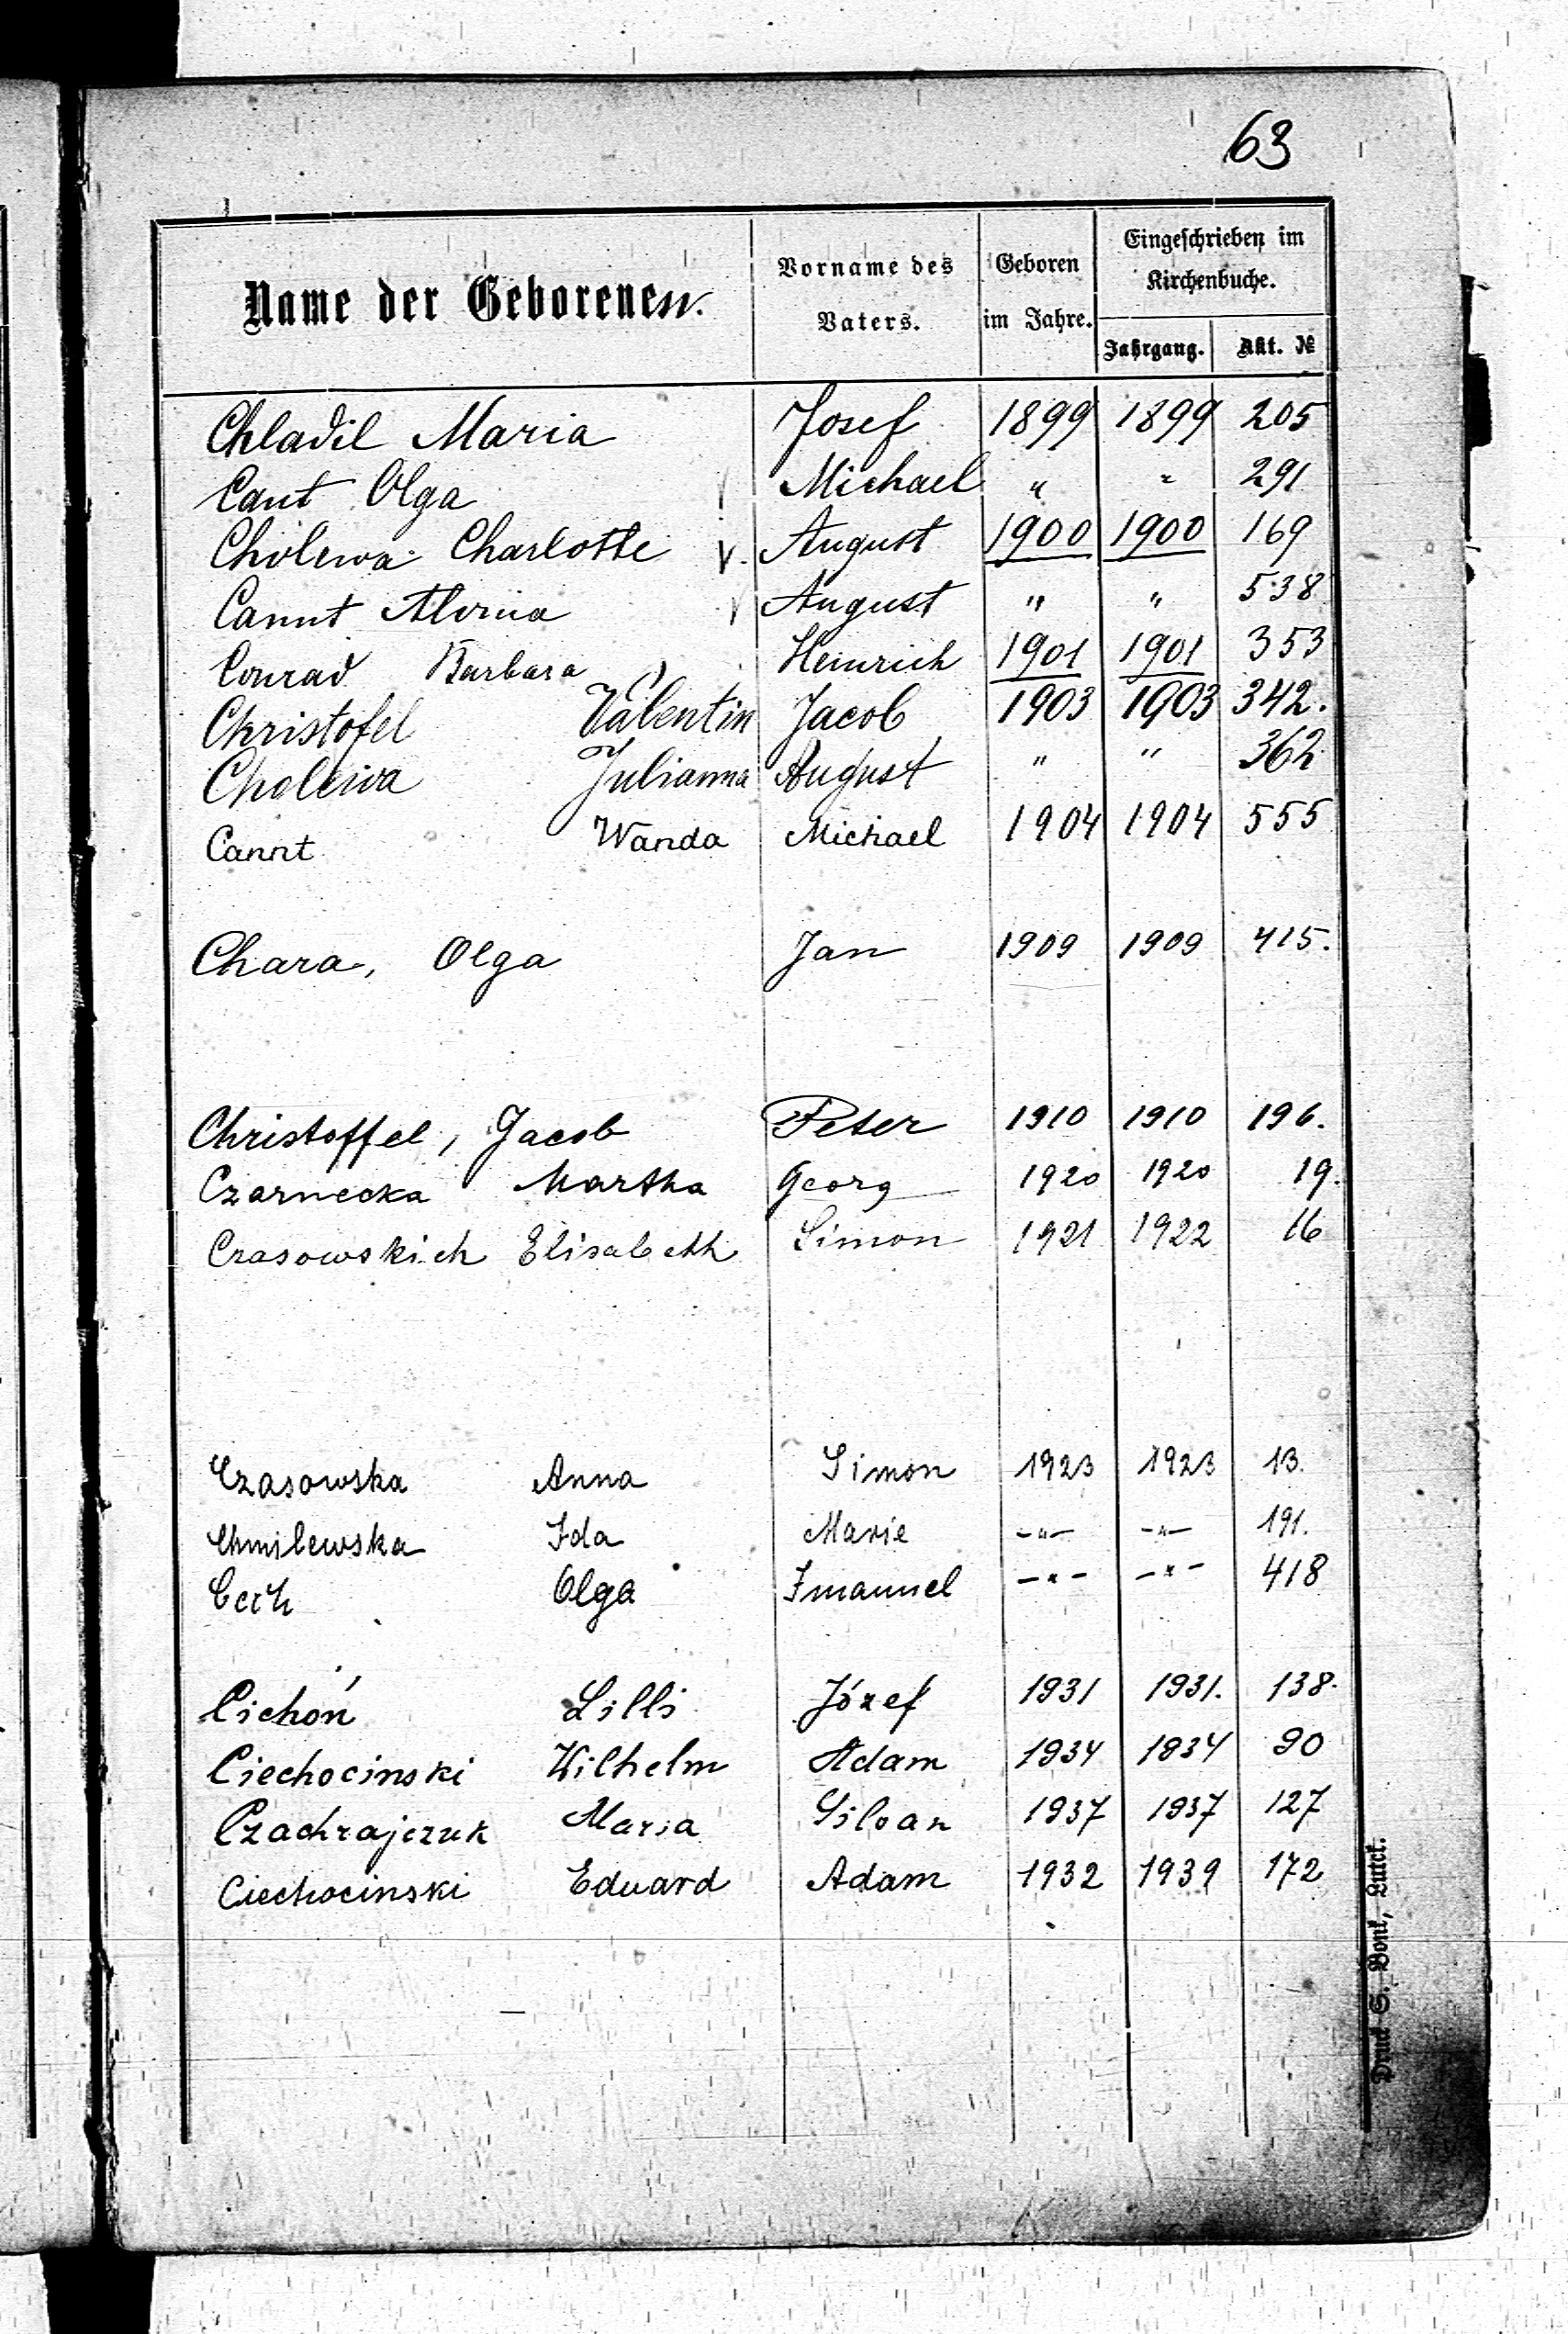 63
Name der Geborenen. Vorname des Vaters. Geboren im Jahre. Eingeschrieben im Kirchenbuche. Jahrgang. Akt. №
Chladil Maria Josef 1899 1899 205
Cant Olga Michael " " 291
Cholewa Charlotte v. August 1900 1900 169
Cannt Alvina August " " 538
Conrad Barbara Heinrich 1901 1901 353
Christofel Valentin Jacob 1903 1903 342.
Cholewa Julianna August " " 362
Cannt Wanda Michael 1904 1904 555
Chara, Olga Jan 1909 1909 415.
Christoffel, Jacob Peter 1910 1910 196.
Czarnecka Martha Georg 1920 1920 19.
Czasowskich Elisabeth Simon 1921 1922 16
Czasowska Anna Simon 1923 1923 13.
Chmilewska Ida Marie -"- -"- 191.
Cech Olga Imanuel -"- -"- 418
Cichoń Lilli Józef 1931 1931. 138.
Ciechocinski Wilhelm Adam 1934 1934 90
Czachrajczuk Maria Silvan 1937 1937 127
Ciechocinski Eduard Adam 1932 1939 172
Druck S. Bont, Lutck.